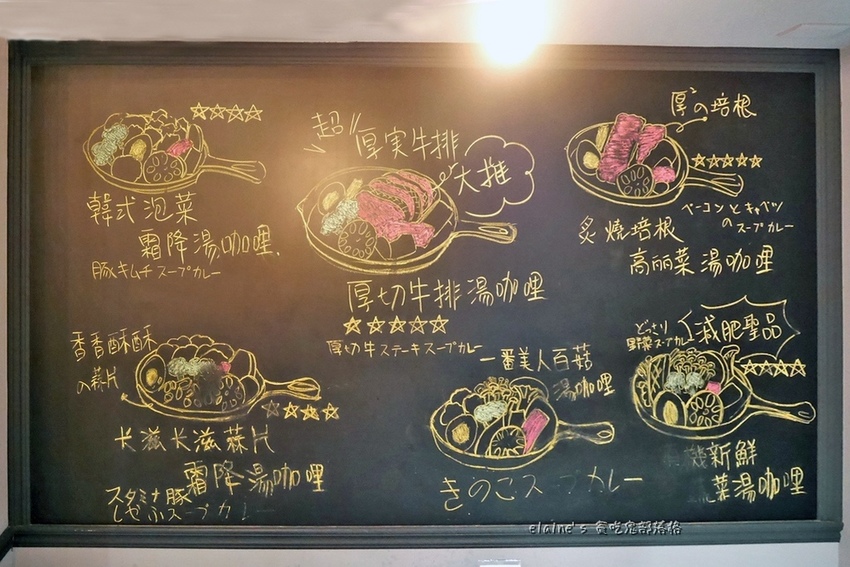 韓式泡菜
霜降湯咖哩
豚キムチスープカレー
超
厚実牛排
大推
厚切牛排湯咖哩
厚切牛ステーキスープカレー
厚の培根
炙燒培根
高丽菜湯咖哩
ベーコンとキャベツ
のスープカレー
香香酥酥
の蒜片
卡滋卡滋蒜片
霜降湯咖哩
スタミナ豚
スープカレー
一番美人百菇
湯咖哩
きのこスープカレー
どっさり
野菜スープカレー
減肥聖品
機新鮮
菜湯咖哩
elaine's 貪吃鬼部落格